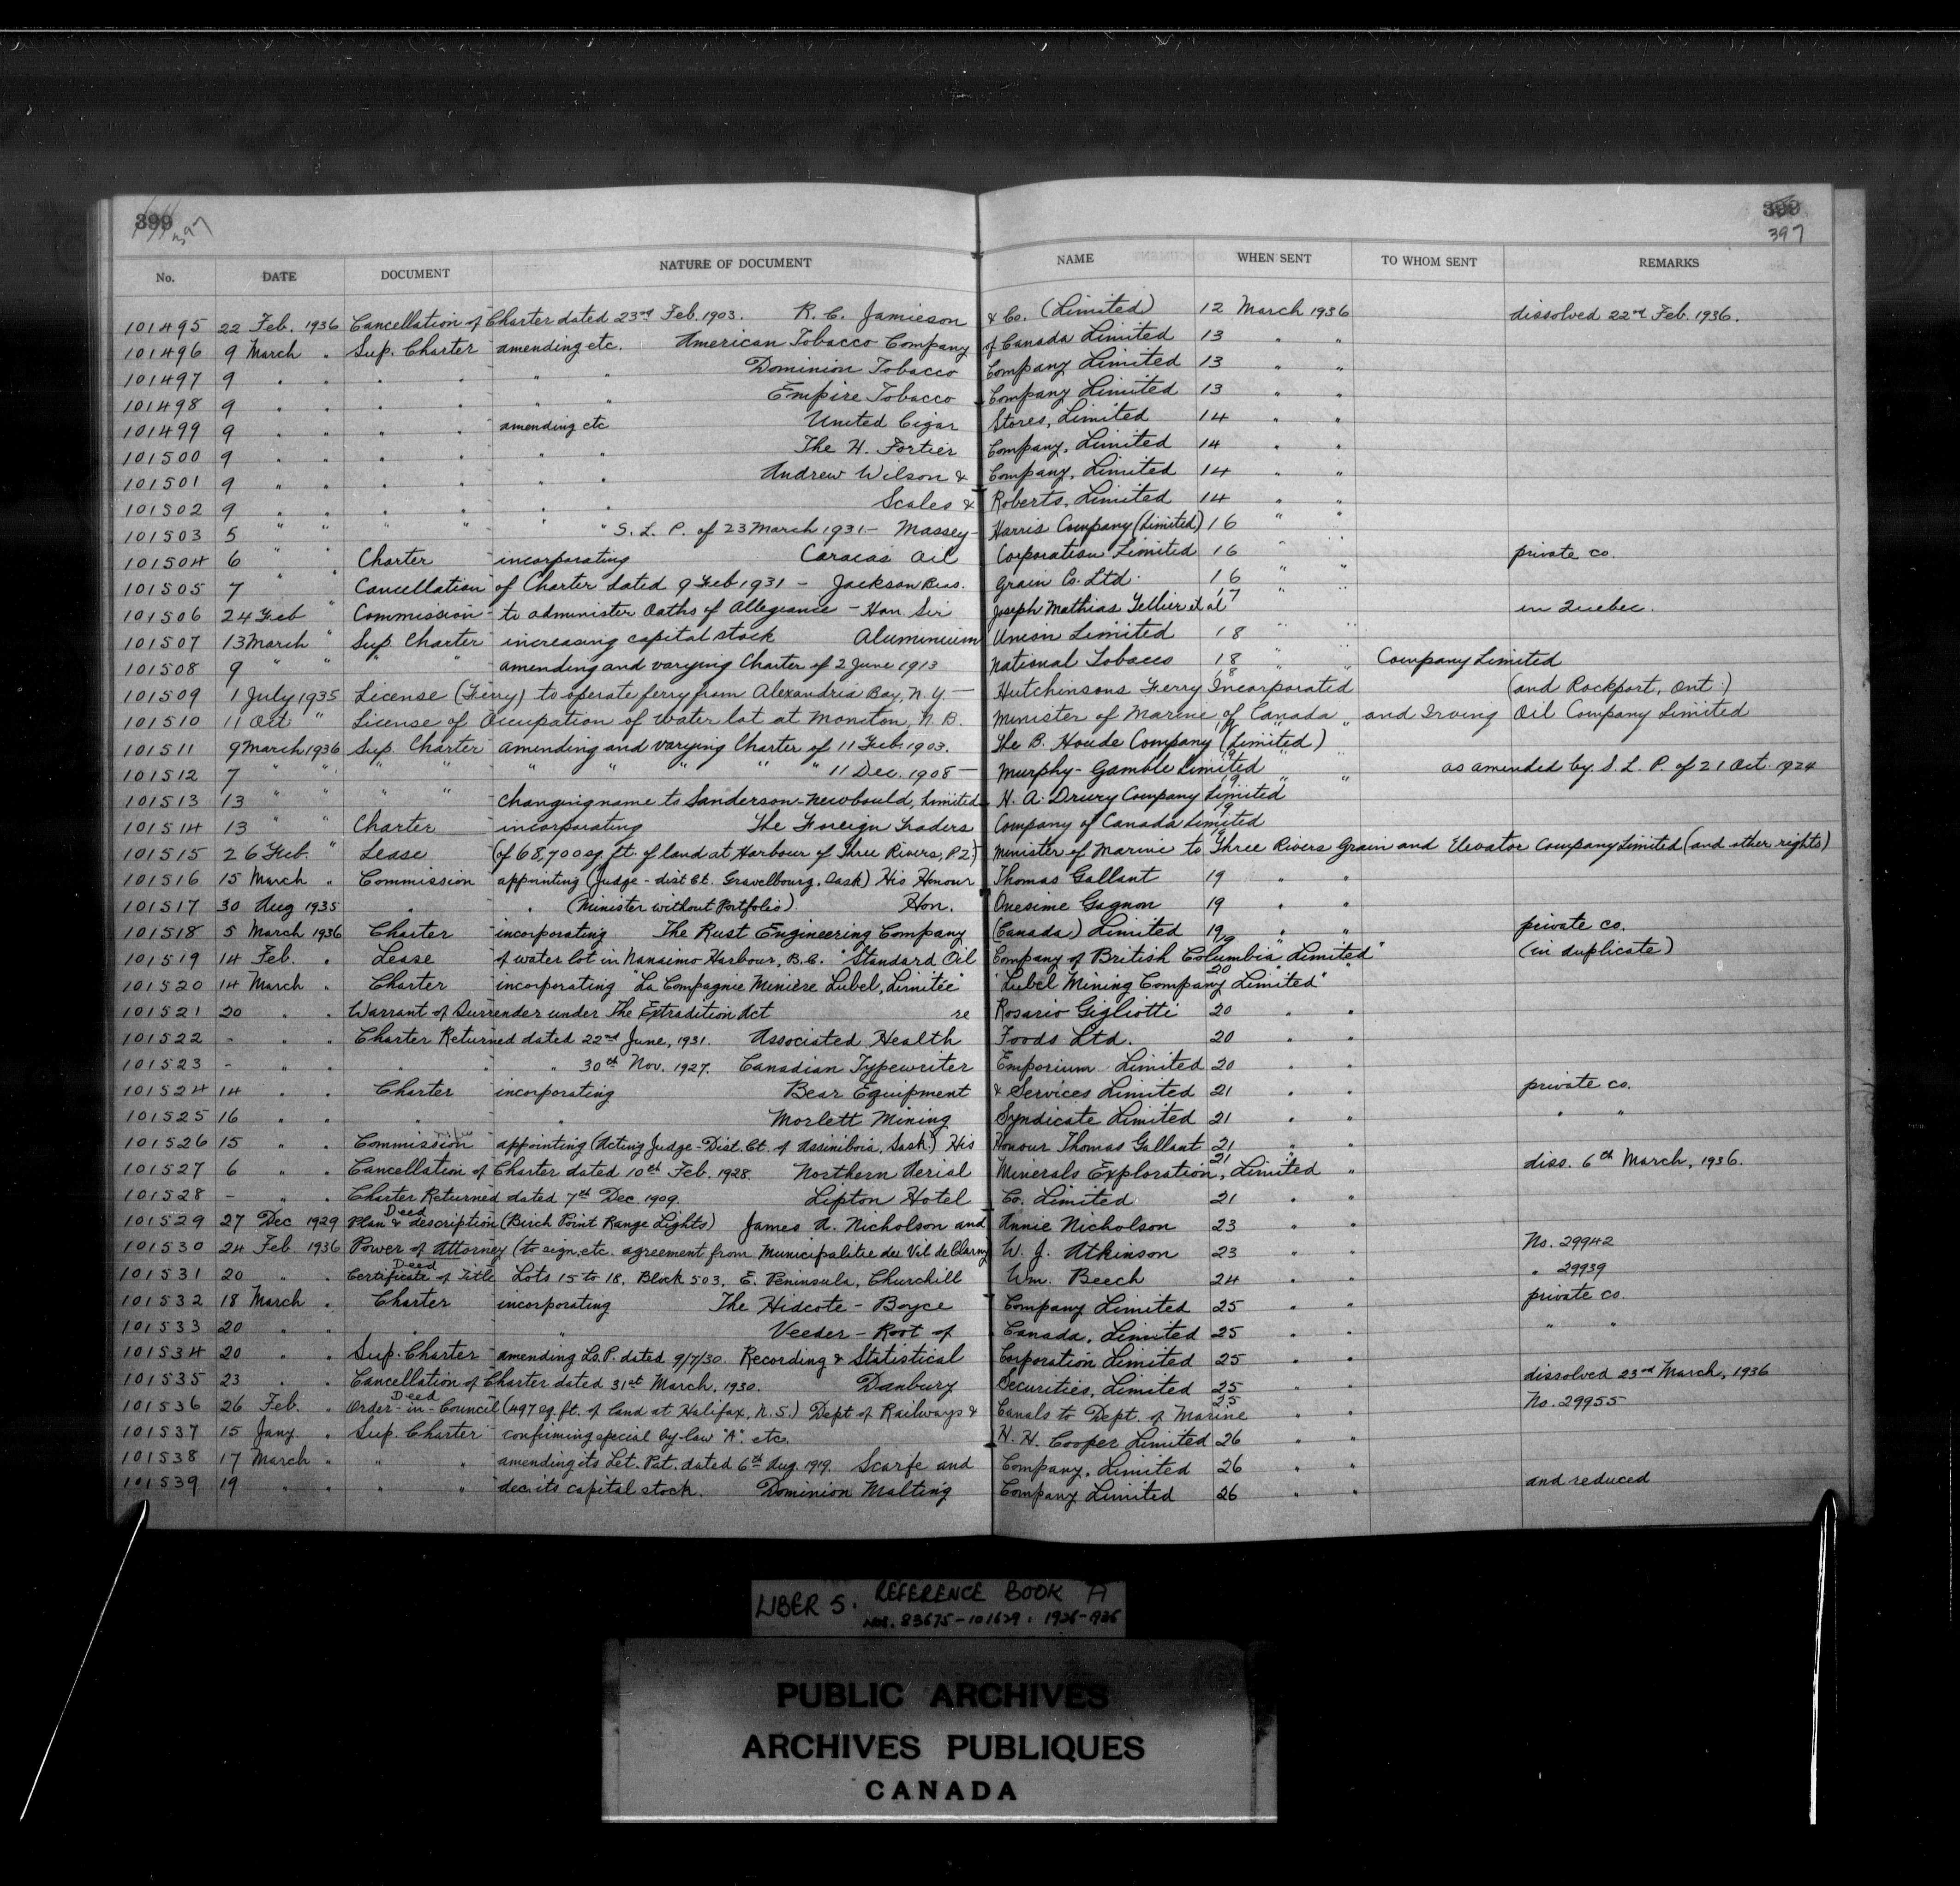 399 397
399
397
No. DATE DOCUMENT NATURE OF DOCUMENT NAME WHEN SENT TO WHOM SENT REMARKS
101495 22 Feb. 1936 Cancellation of Charter dated 23rd Feb. 1903. R. C. Jamieson & Co. (Limited) 12 March 1936 dissolved 22nd Feb. 1936.
101496 9 March " Sup. Charter amending etc. American Tobacco Company of Canada Limited 13 " "
101497 9 " " " " " " Dominion Tobacco Company Limited 13 " "
101498 9 " " " " " " Empire Tobacco Company Limited 13 " "
101499 9 " " " " amending etc United Cigar Stores, Limited 14 " "
101500 9 " " " " " " The H. Fortier Company, Limited 14 " "
101501 9 " " " " " " Andrew Wilson & Company, Limited 14 " "
101502 9 " " " " " " Scales & Roberts, Limited 14 " "
101503 5 " " " " " " S. L. P. of 23 March 1931 - Massey- Harris Company (Limited) 16 " "
101504 6 " " Charter incorporating Caracas Oil Corporation Limited 16 " " private co.
101505 7 " " Cancellation of Charter dated 9 Feb 1931 - Jackson Bros. Grain Co. Ltd. 16 " "
101506 24 Feb " Commission to administer Oaths of Allegiance - Hon. Sir Joseph Mathias Tellier et al 17 " " in Quebec.
101507 13 March " Sup. Charter increasing capital stock Aluminium Union Limited 18 " "
101508 9 " " " " amending and varying Charter of 2 June 1913 National Tobacco 18 " " Company Limited
101509 1 July 1935 License (Ferry) to operate ferry from Alexandria Bay, N.Y. - Hutchinsons Ferry Incorporated 18 (and Rockport, Ont.)
101510 11 Oct " License of Occupation of water lot at Moncton, N.B. Minister of Marine of Canada " and Irving Oil Company Limited
101511 9 March 1936 Sup. Charter amending and varying Charter of 11 Feb. 1903. The B. Houde Company (Limited)
101512 7 " " " " " " " " " 11 Dec. 1908 - Murphy-Gamble Limited 19 " " as amended by S. L. P. of 21 Oct. 1924
101513 13 " " " " changing name to Sanderson-Newbould, Limited H. A. Drury Company Limited 19
101514 13 " " Charter incorporating The Foreign Traders Company of Canada Limited 19
101515 26 Feb. " Lease (of 68,700 sq. ft. of land at Harbour of Three Rivers, P.Q.) Minister of Marine to Three Rivers Grain and Elevator Company Limited (and other rights) 19
101516 15 March " Commission appointing (Judge - dist Ct. Gravelbourg, Sask) His Honour Thomas Gallant 19 " "
101517 30 Aug 1935 " " (Minister without Portfolio) Hon. Onesime Gagnon 19 " "
101518 5 March 1936 Charter incorporating The Rust Engineering Company (Canada) Limited 19 " " private co.
101519 14 Feb. " Lease of water lot in Nanaimo Harbour, B.C. "Standard Oil Company of British Columbia Limited" 19 " (in duplicate)
101520 14 March " Charter incorporating "La Compagnie Minière Lubel, Limitée" "Lubel Mining Company Limited" 20 "
101521 20 " " Warrant of Surrender under The Extradition Act re Rosario Gigliotti 20 " "
101522 - " " Charter Returned dated 22nd June, 1931. Associated Health Foods Ltd. 20 " "
101523 - " " " " " 30th Nov. 1927. Canadian Typewriter Emporium Limited 20 " "
101524 14 " " Charter incorporating Bear Equipment & Services Limited 21 " " private co.
101525 16 " " " " Morlett Mining Syndicate Limited 21 " " " "
101526 15 " " Commission appointing (Acting Judge - Dist. Ct. of Assiniboia, Sask.) His Honour Thomas Gallant 21 " "
101527 6 " " Cancellation of Charter dated 10th Feb. 1928. Northern Aerial Minerals Exploration, Limited 21 " " diss. 6th March, 1936.
101528 - " " Charter Returned dated 7th Dec. 1909. Lipton Hotel Co. Limited 21 " "
101529 27 Dec 1929 Deed Plan & description (Birch Point Range Lights) James A. Nicholson and Annie Nicholson 23 " "
101530 24 Feb. 1936 Power of Attorney (to sign, etc. agreement from Municipalitie du Vil de W. J. Atkinson 23 " " No. 29942
101531 20 " " Deed Certificate of Title Lots 15 to 18, Block 503, E. Peninsula, Churchill Wm. Beech 24 " " " 29939
101532 18 March " Charter incorporating The Hidcote - Boyce Company Limited 25 " " private co.
101533 20 " " " " Veeder - Root of Canada, Limited 25 " " " "
101534 20 " " Sup. Charter amending Ls. P. dated 9/7/30. Recording & Statistical Corporation Limited 25 " "
101535 23 " " Cancellation of Charter dated 31st March, 1930. Danbury Securities, Limited 25 " " dissolved 23rd March, 1936
101536 26 Feb. " Deed Order-in-Council (497 sq. ft. of land at Halifax, N.S.) Dept of Railways & Canals to Dept. of Marine 25 " " No. 29955
101537 15 Jany. " Sup. Charter confirming special by-law "A". etc. H. H. Cooper Limited 26 " "
101538 17 March " " " amending its Let. Pat. dated 6th Aug. 1919. Scarfe and Company, Limited 26 " "
101539 19 " " " " dec. its capital stock. Dominion Malting Company Limited 26 " " and reduced
LIBER 5. REFERENCE BOOK A
NOS. 83675-101629: 1926-1936
PUBLIC ARCHIVES
ARCHIVES PUBLIQUES
CANADA